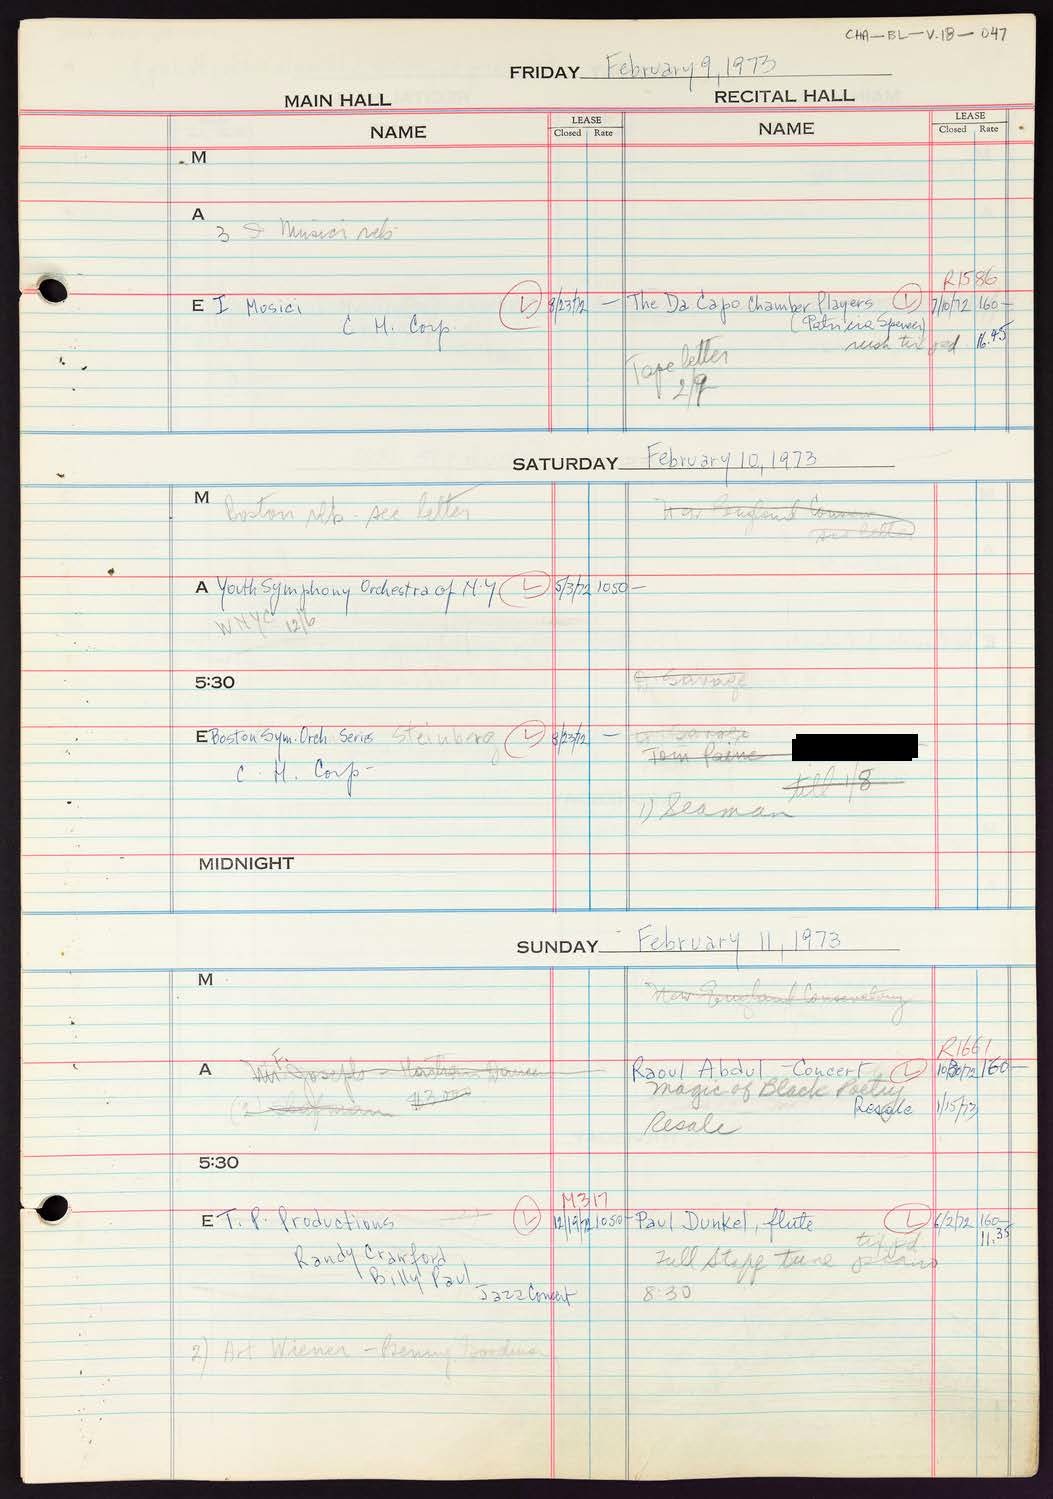 CHA-BL-V.18-047
FRIDAY February 9, 1973
MAIN HALL RECITAL HALL
NAME LEASE Closed Rate NAME LEASE Closed Rate
M
A
3 I Musici reh
R1586
E I Musici L 8/23/72 — The Da Capo Chamber Players L 7/10/72 160—
C. H. Corp. (Patricia Spencer)
16.45
Tape letter
2/9
SATURDAY February 10, 1973
M Boston reh - see letter New England Conserv
see letter
A Youth Symphony Orchestra of N.Y L 5/3/72 1050—
WNYC 12/6
5:30 Savage
E Boston Sym. Orch Series Steinberg L 8/23/72 —
C. H. Corp- Tom Paine
till 1/8
1) Seaman
MIDNIGHT
SUNDAY February 11, 1973
M New England Conservatory
R1661
A Mr F. Joseph - Dance Raoul Abdul - Concert L 10/30/72 160—
Magic of Black Poetry
Resale 1/15/73
Resale
5:30
M317
E T. P. Productions L 12/19/72 1050— Paul Dunkel, flute L 6/2/72 160—
11.35
Randy Crawford Full Stage tune piano
Billy Paul
Jazz Concert 8:30
2) Art Wiener - Benny Goodman